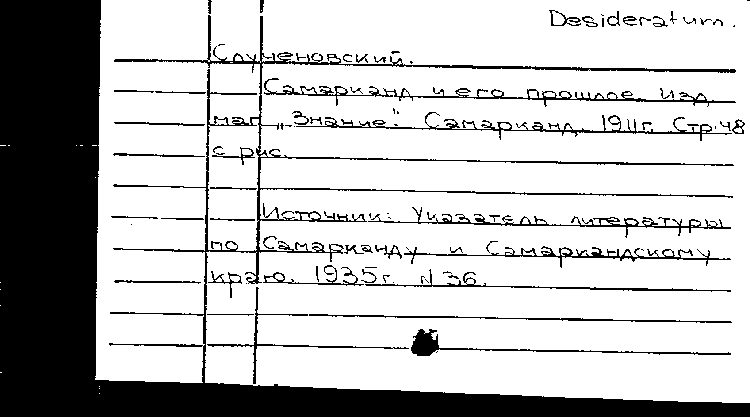 Desideratum.
Слученовский.
Самарканд и его прошлое. Изд.
маг. „Знание". Самарканд. 1911г. Стр.48
с рис.
Источник: Указатель литературы
по Самарканду и Самаркандскому
краю. 1935г. N 36.